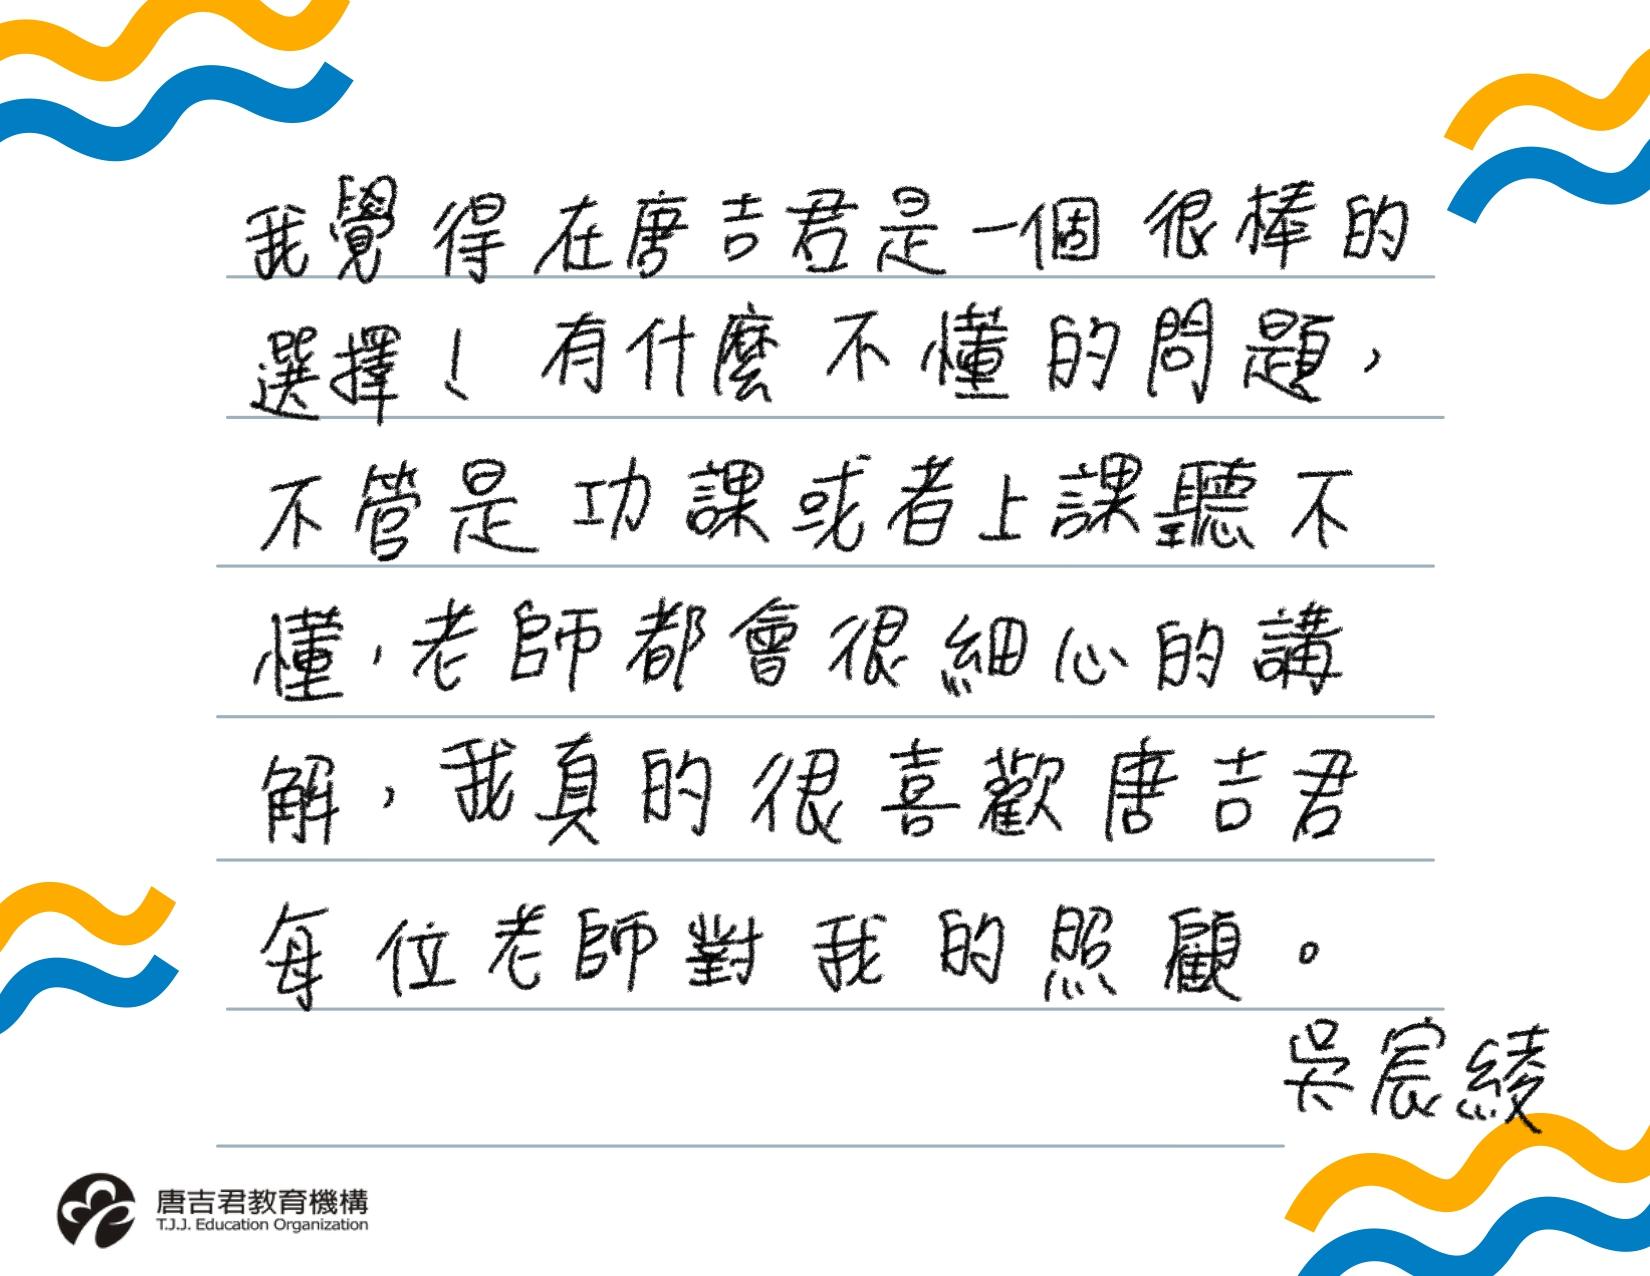 我覺得在唐吉君是一個很棒的
選擇！有什麼不懂的問題，
不管是功課或者上課聽不
懂，老師都會很細心的講
解，我真的很喜歡唐吉君
每位老師對我的照顧。
吳宸綾
唐吉君教育機構
T.J.J. Education Organization